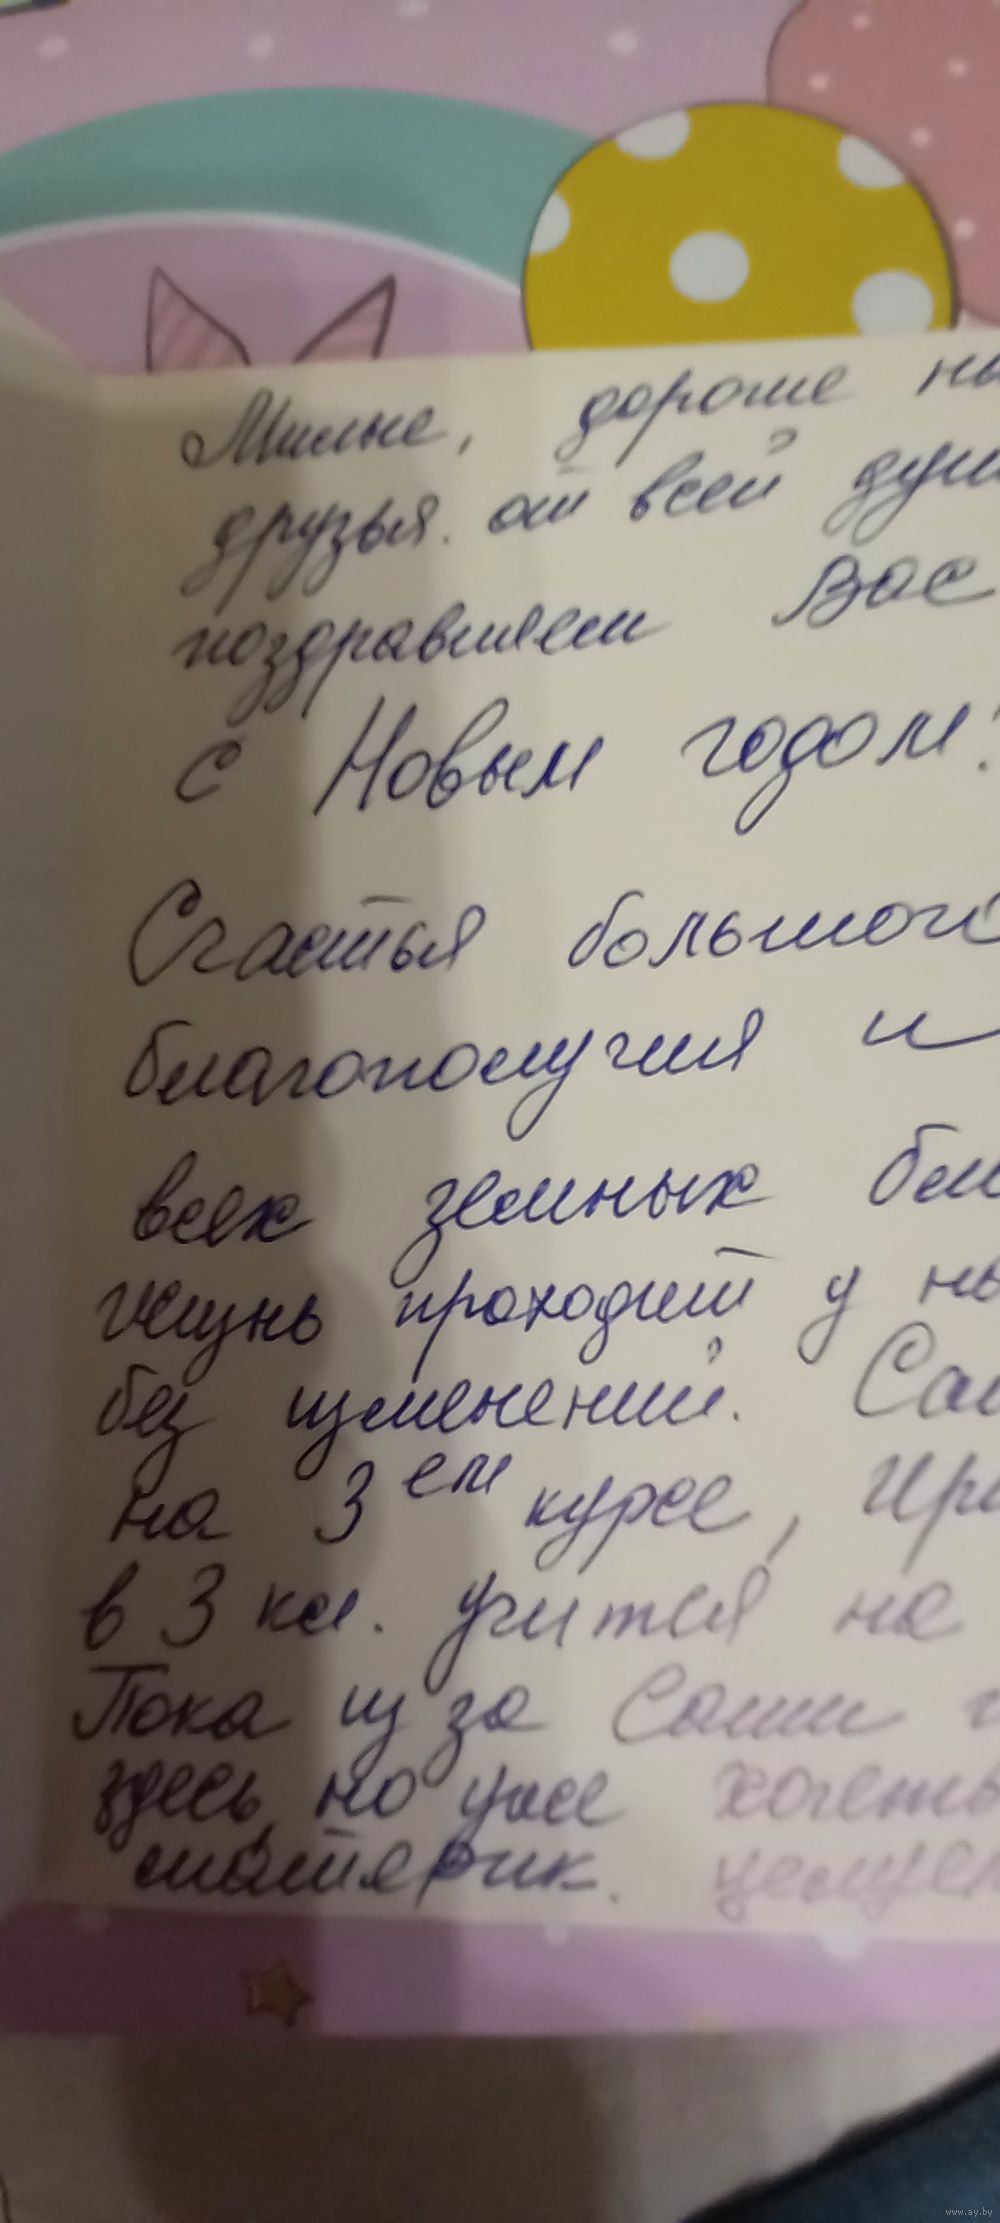 Милые, дороше на
друзья. от всей душ
поздравляем Вас
с Новым годом!
Счастья большого
благополучия и
всех земных бла
жизнь проходит у на
без изменений. Саш
на 3ем курсе, Ира
в 3 кл. учится на
Пока из за Саши
здесь, но уже хочеть
матерік. целуем
www.ay.by